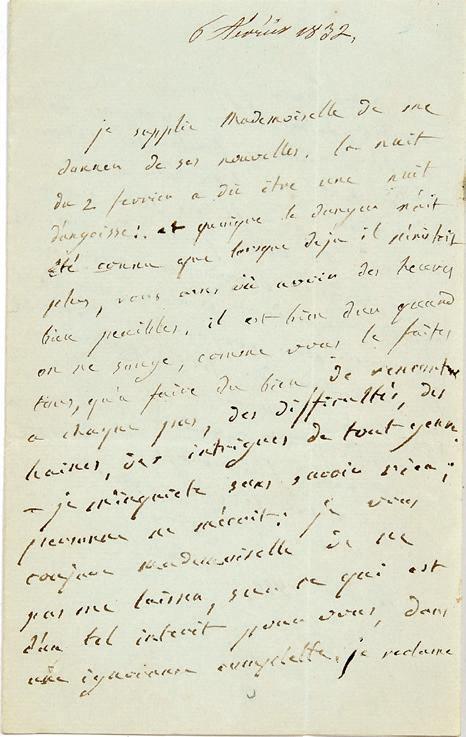 6 février 1832.
je supplie Mademoiselle de me
donner de ses nouvelles. la nuit
du 2 fevrier a dû être une nuit
d'angoisse!. et quoique le danger n'ait
été connu que lorsque deja il n'éxistoit
plus, vous avez dû avoir des heures
bien penibles. il est bien dur quand
on ne songe, comme vous le faites
tous, qu'a faire du bien de rencontrer
a chaque pas, des difficultés, des
haines, des intrigues de tout genre.
– je m'inquiete sans savoir rien;
personne ne m'écrit. je vous
conjure mademoiselle de ne
pas me laisser, sur ce qui est
d'un tel interêt pour vous, dans
une ignorance complette. je reclame